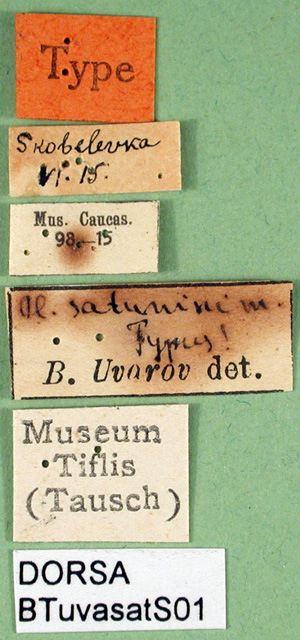 Type
Skobelevka
VI. 15.
Mus. Caucas.
98—15
satunini m.
Typus!
B. Uvarov det.
Museum
Tiflis
(Tausch)
DORSA
BTuvasatS01